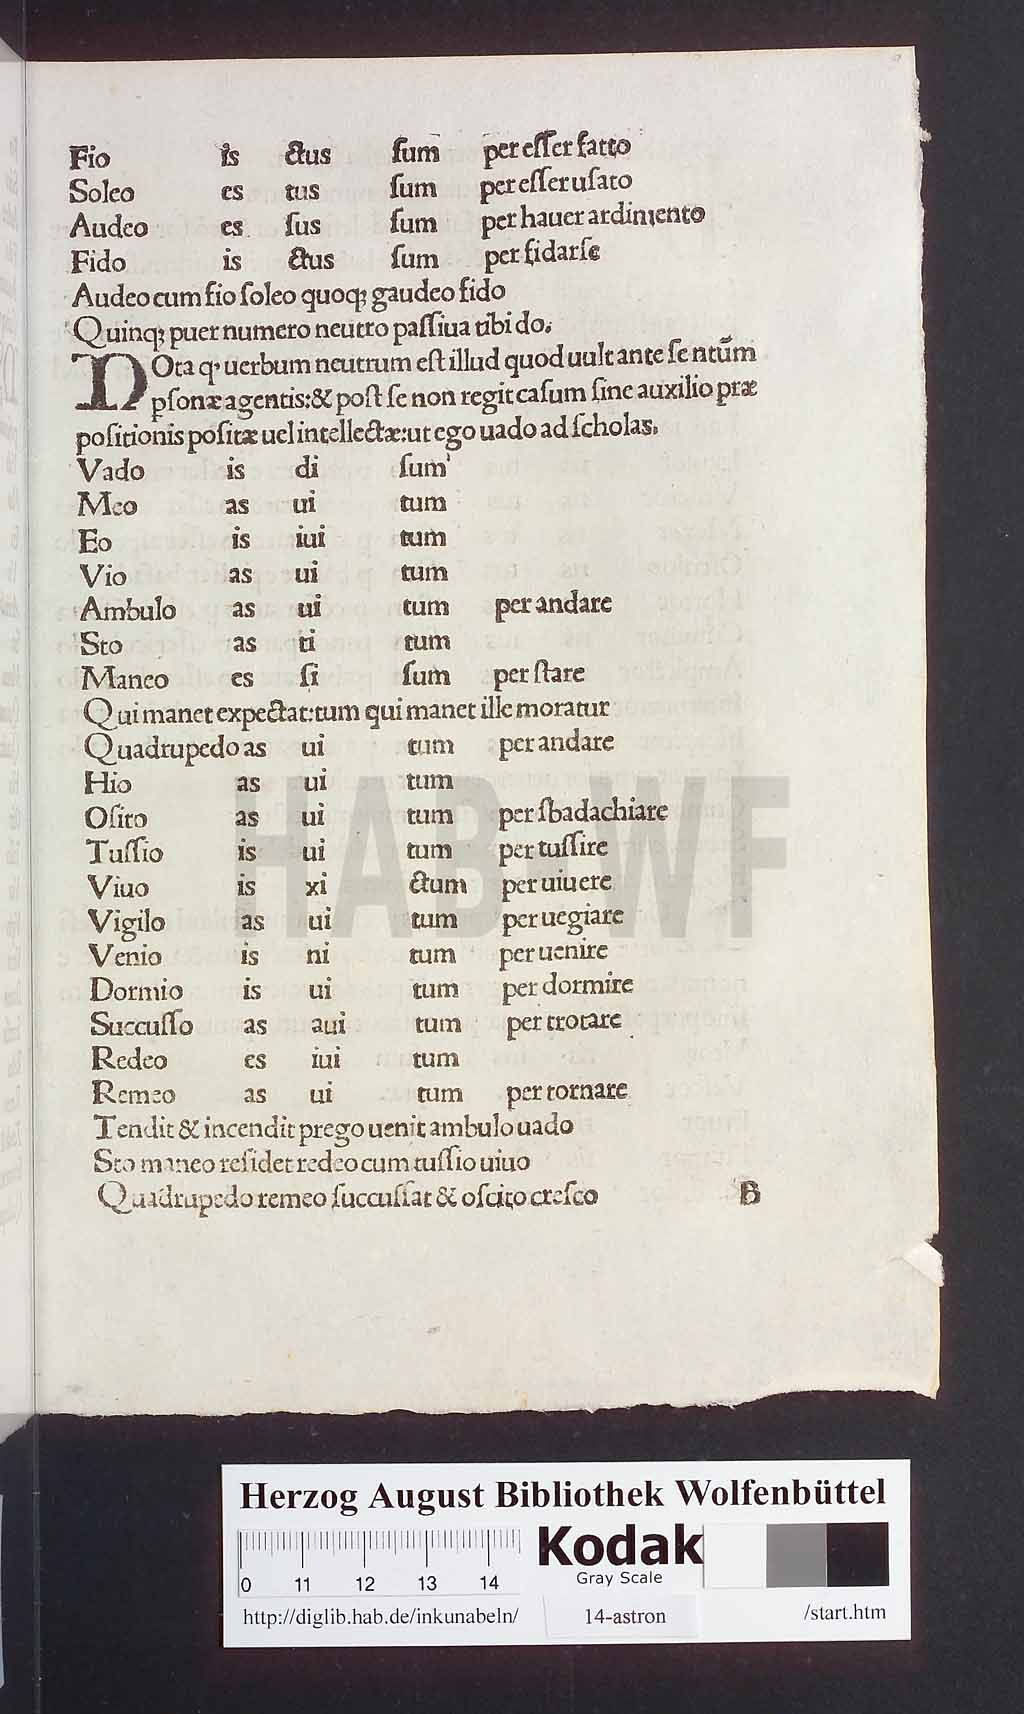 Fio is ctus ſum per eſſer fatto
Soleo es tus ſum per eſſer uſato
Audeo es ſus ſum per hauer ardimento
Fido is ctus ſum per fidarſe
Audeo cum fio ſoleo quoqȝ gaudeo fido
Quinqȝ puer numero neutro paſſiua tibi do.
NOta qʾ uerbum neutrum eſt illud quod uult ante ſe ntūm
pſonæ agentis:& poſt ſe non regit caſum ſine auxilio præ
poſitionis poſitæ uel intellectæ:ut ego uado ad ſcholas.
Vado is di ſum
Meo as ui tum
Eo is iui tum
Vio as ui tum
Ambulo as ui tum per andare
Sto as ti tum
Maneo es ſi ſum per ſtare
Qui manet expectat:tum qui manet ille moratur
Quadrupedo as ui tum per andare
Hio as ui tum
Oſito as ui tum per ſbadachiare
Tuſſio is ui tum per tuſſire
Viuo is xi ctum per uiuere
Vigilo as ui tum per uegiare
Venio is ni tum per uenire
Dormio is ui tum per dormire
Succuſſo as aui tum per trotare
Redeo es iui tum
Remeo as ui tum per tornare
Tendit & incendit prego uenit ambulo uado
Sto maneo reſidet redeo cum tuſſio uiuo
Quadrupedo remeo ſuccuſſat & oſcito creſco B
HAB WF
Herzog August Bibliothek Wolfenbüttel
0 11 12 13 14
Kodak
Gray Scale
http://diglib.hab.de/inkunabeln/ 14-astron /start.htm